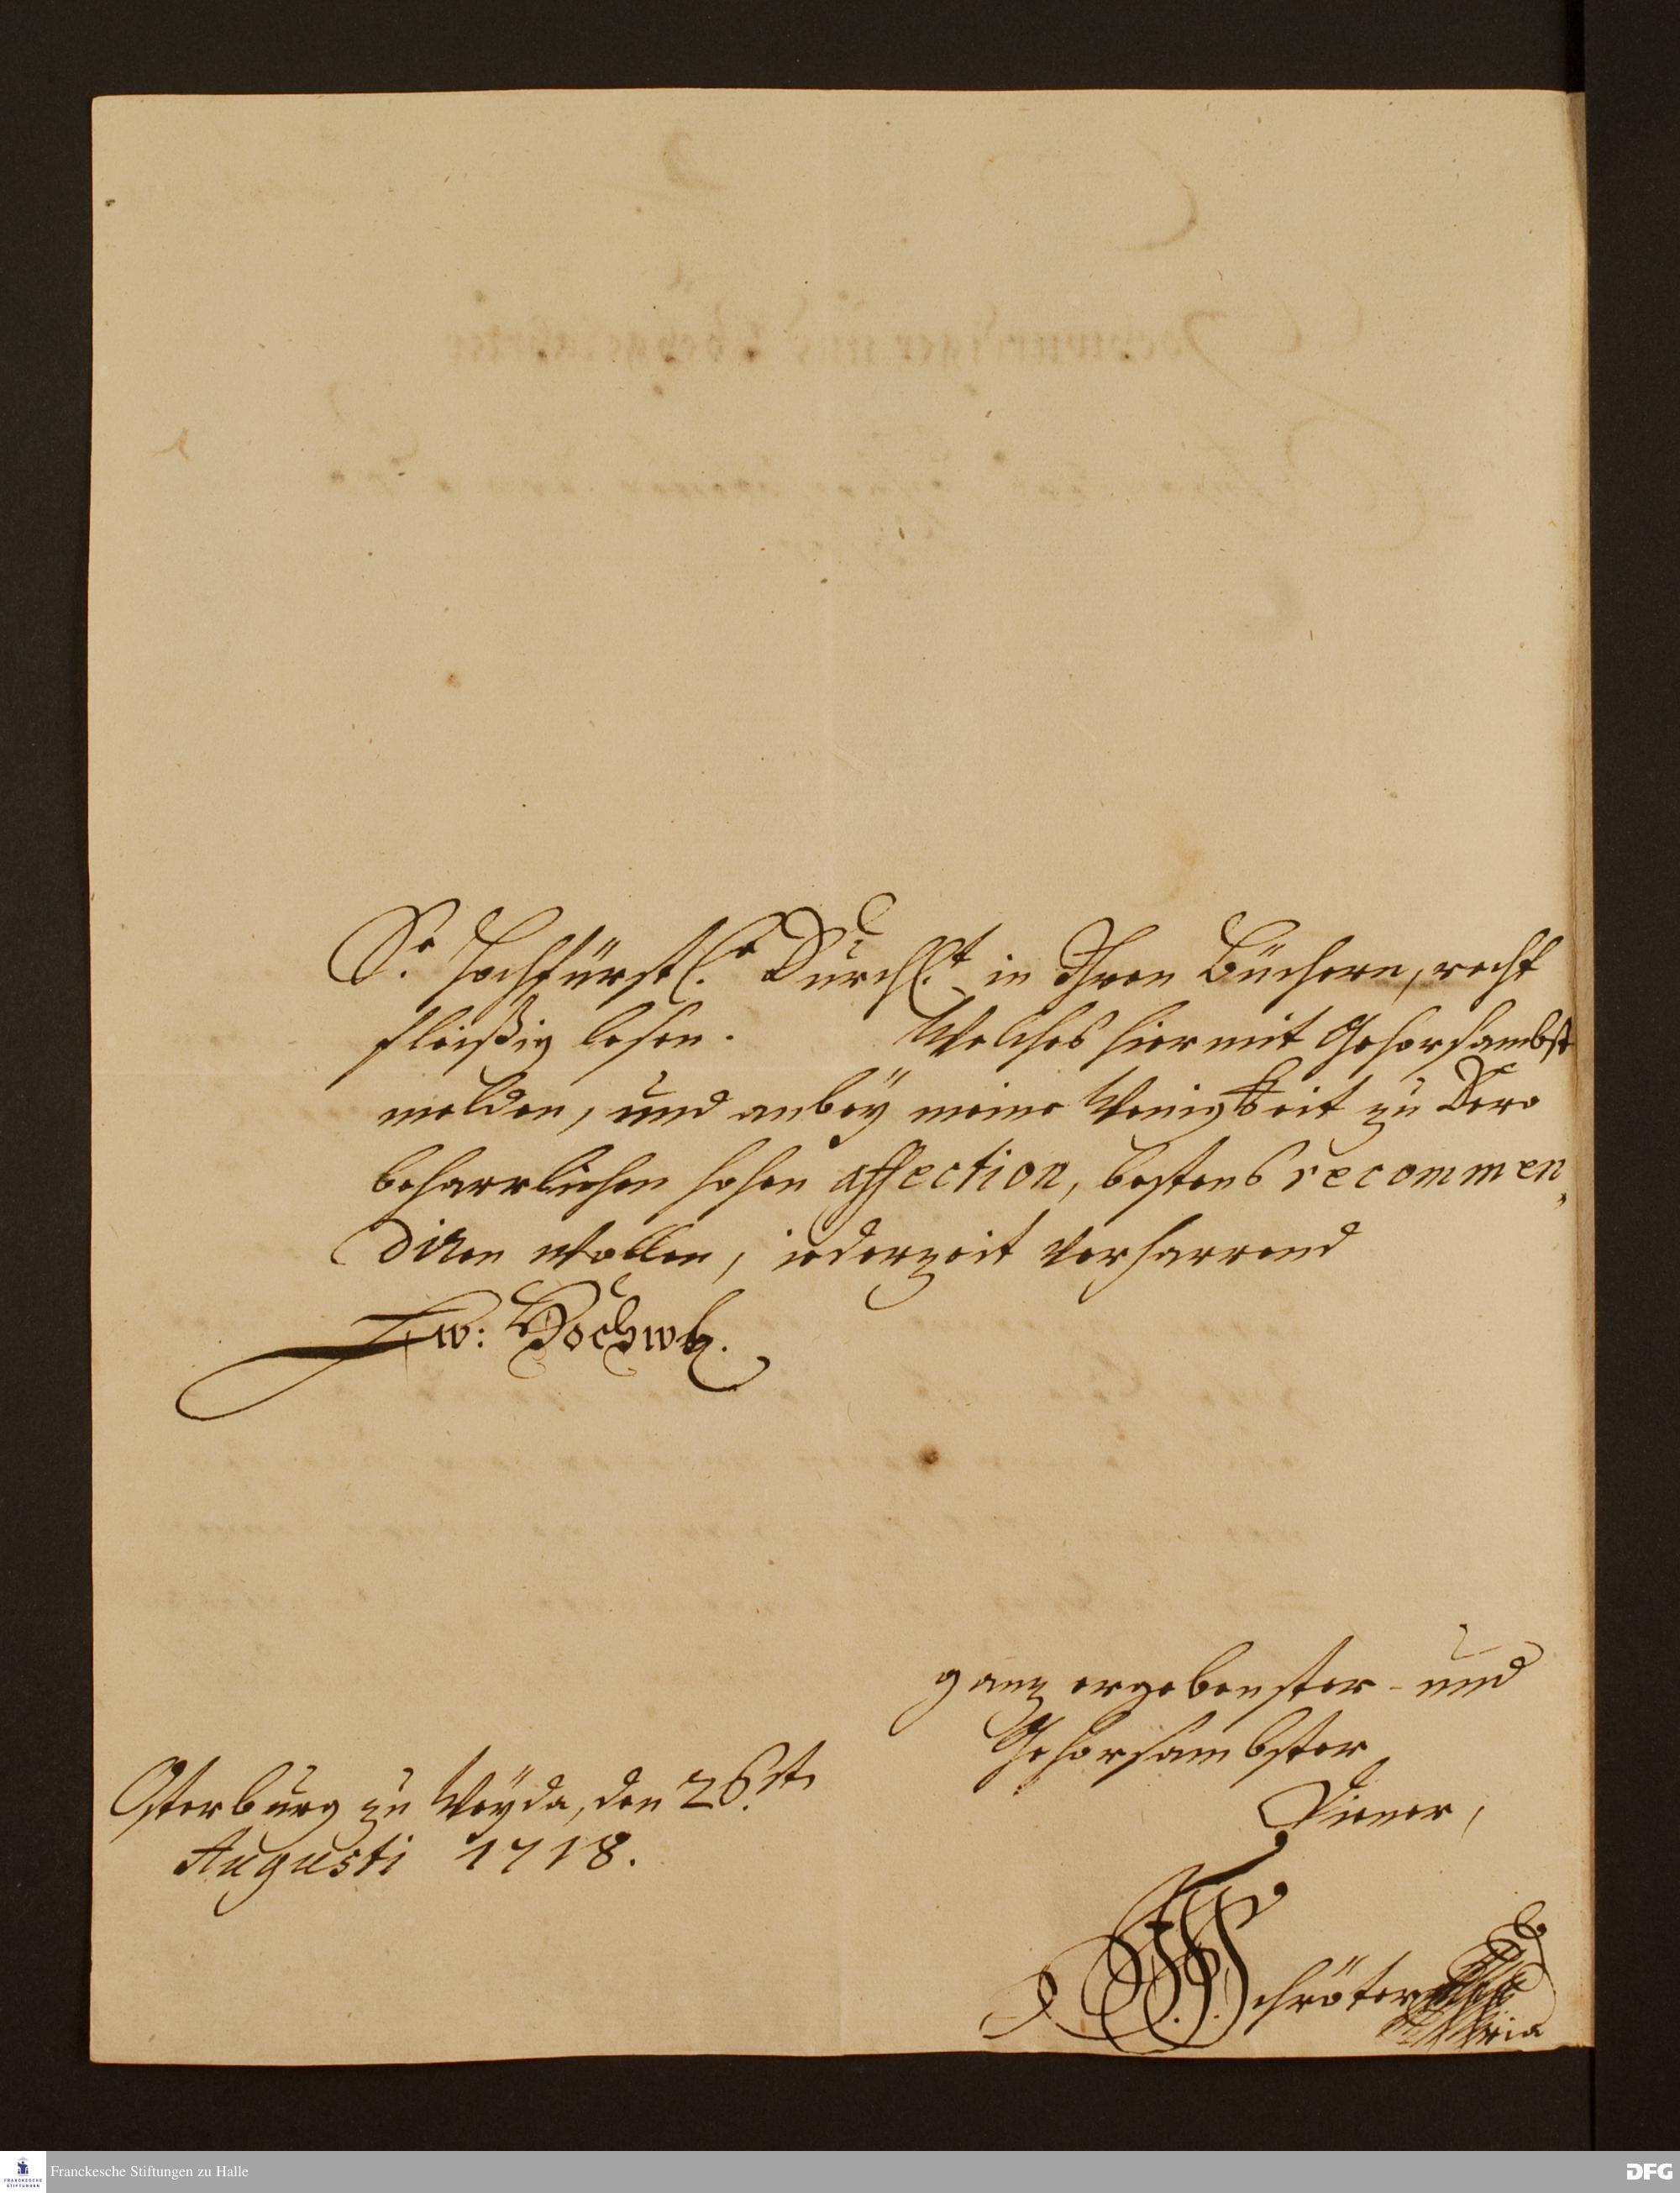 Sr. Hochfürstl.e Durchl.t in Ihren Büchern, recht
fleißig lesen. Welches hiermit Gehorsambst
melden, und anbeÿ meine Wenigkeit zu Dero
beharrlichen hohen affection, bestens recommen„
diren wollen, iederzeit verharrend
Ew: Hochw.
ganz ergebenster - und
Gehorsambster
Diener,
Osterburg zu Weÿda, den 26.st.
Augusti 1718.
Schröter
Franckesche Stiftungen zu Halle
FRANCKESCHE
STIFTUNGEN
DFG